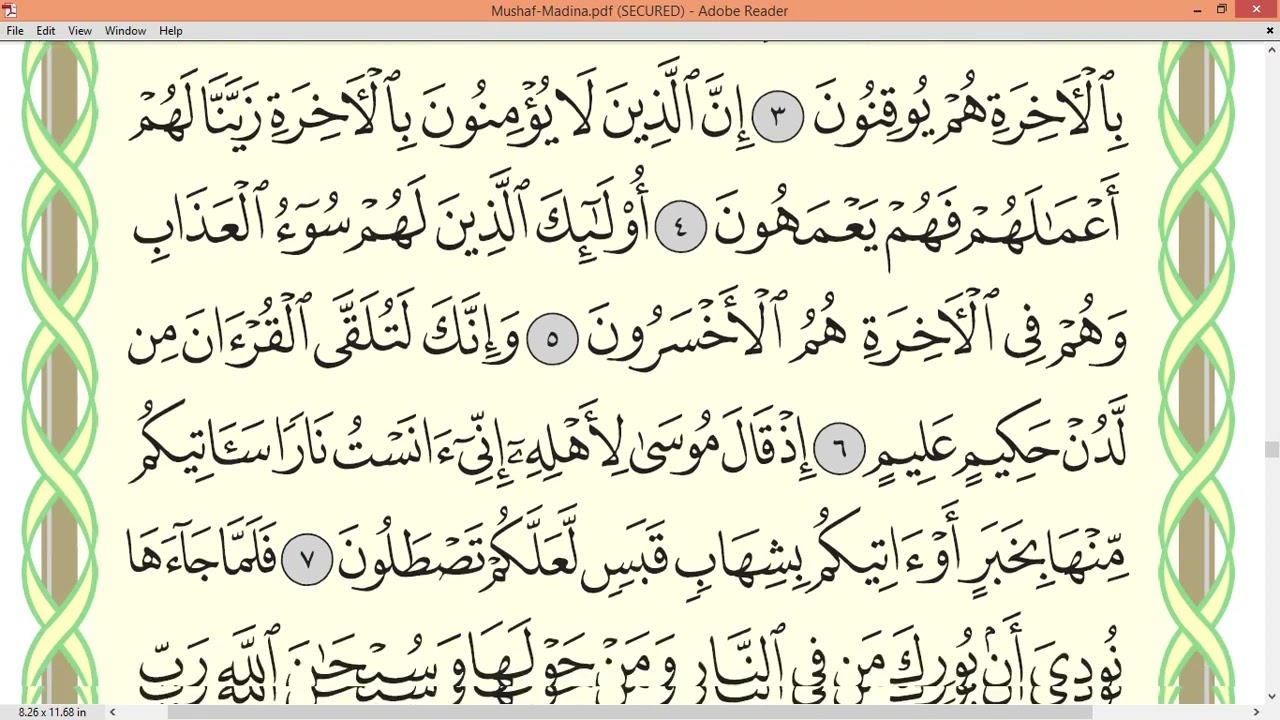 Mushaf-Madina.pdf (SECURED) - Adobe Reader
File Edit View Window Help
بِٱلۡأٓخِرَةِ هُمۡ يُوقِنُونَ ٣ إِنَّ ٱلَّذِينَ لَا يُؤۡمِنُونَ بِٱلۡأٓخِرَةِ زَيَّنَّا لَهُمۡ
أَعۡمَٰلَهُمۡ فَهُمۡ يَعۡمَهُونَ ٤ أُوْلَٰٓئِكَ ٱلَّذِينَ لَهُمۡ سُوٓءُ ٱلۡعَذَابِ
وَهُمۡ فِي ٱلۡأٓخِرَةِ هُمُ ٱلۡأَخۡسَرُونَ ٥ وَإِنَّكَ لَتُلَقَّى ٱلۡقُرۡءَانَ مِن
لَّدُنۡ حَكِيمٍ عَلِيمٍ ٦ إِذۡ قَالَ مُوسَىٰ لِأَهۡلِهِۦٓ إِنِّيٓ ءَانَسۡتُ نَارٗا سَـَٔاتِيكُم
مِّنۡهَا بِخَبَرٍ أَوۡ ءَاتِيكُم بِشِهَابٖ قَبَسٖ لَّعَلَّكُمۡ تَصۡطَلُونَ ٧ فَلَمَّا جَآءَهَا
نُودِيَ أَنۢ بُورِكَ مَن فِي ٱلنَّارِ وَمَنۡ حَوۡلَهَا وَسُبۡحَٰنَ ٱللَّهِ رَبِّ
8.26 x 11.68 in